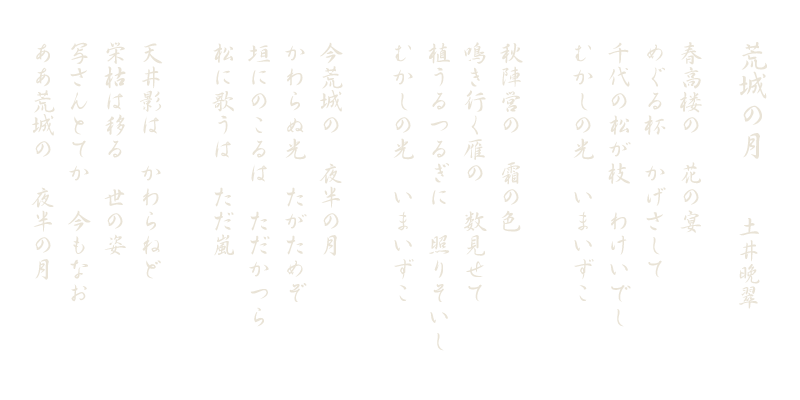 荒城の月　　土井晩翠
春高楼の　花の宴
めぐる杯　かげさして
千代の松が枝　わけいでし
むかしの光　いまいずこ
秋陣営の　霜の色
鳴き行く雁の　数見せて
植うるつるぎに　照りそいし
むかしの光　いまいずこ
今荒城の　夜半の月
かわらぬ光　たがためぞ
垣にのこるは　ただかつら
松に歌うは　ただ嵐
天井影は　かわらねど
栄枯は移る　世の姿
写さんとてか　今もなお
ああ荒城の　夜半の月